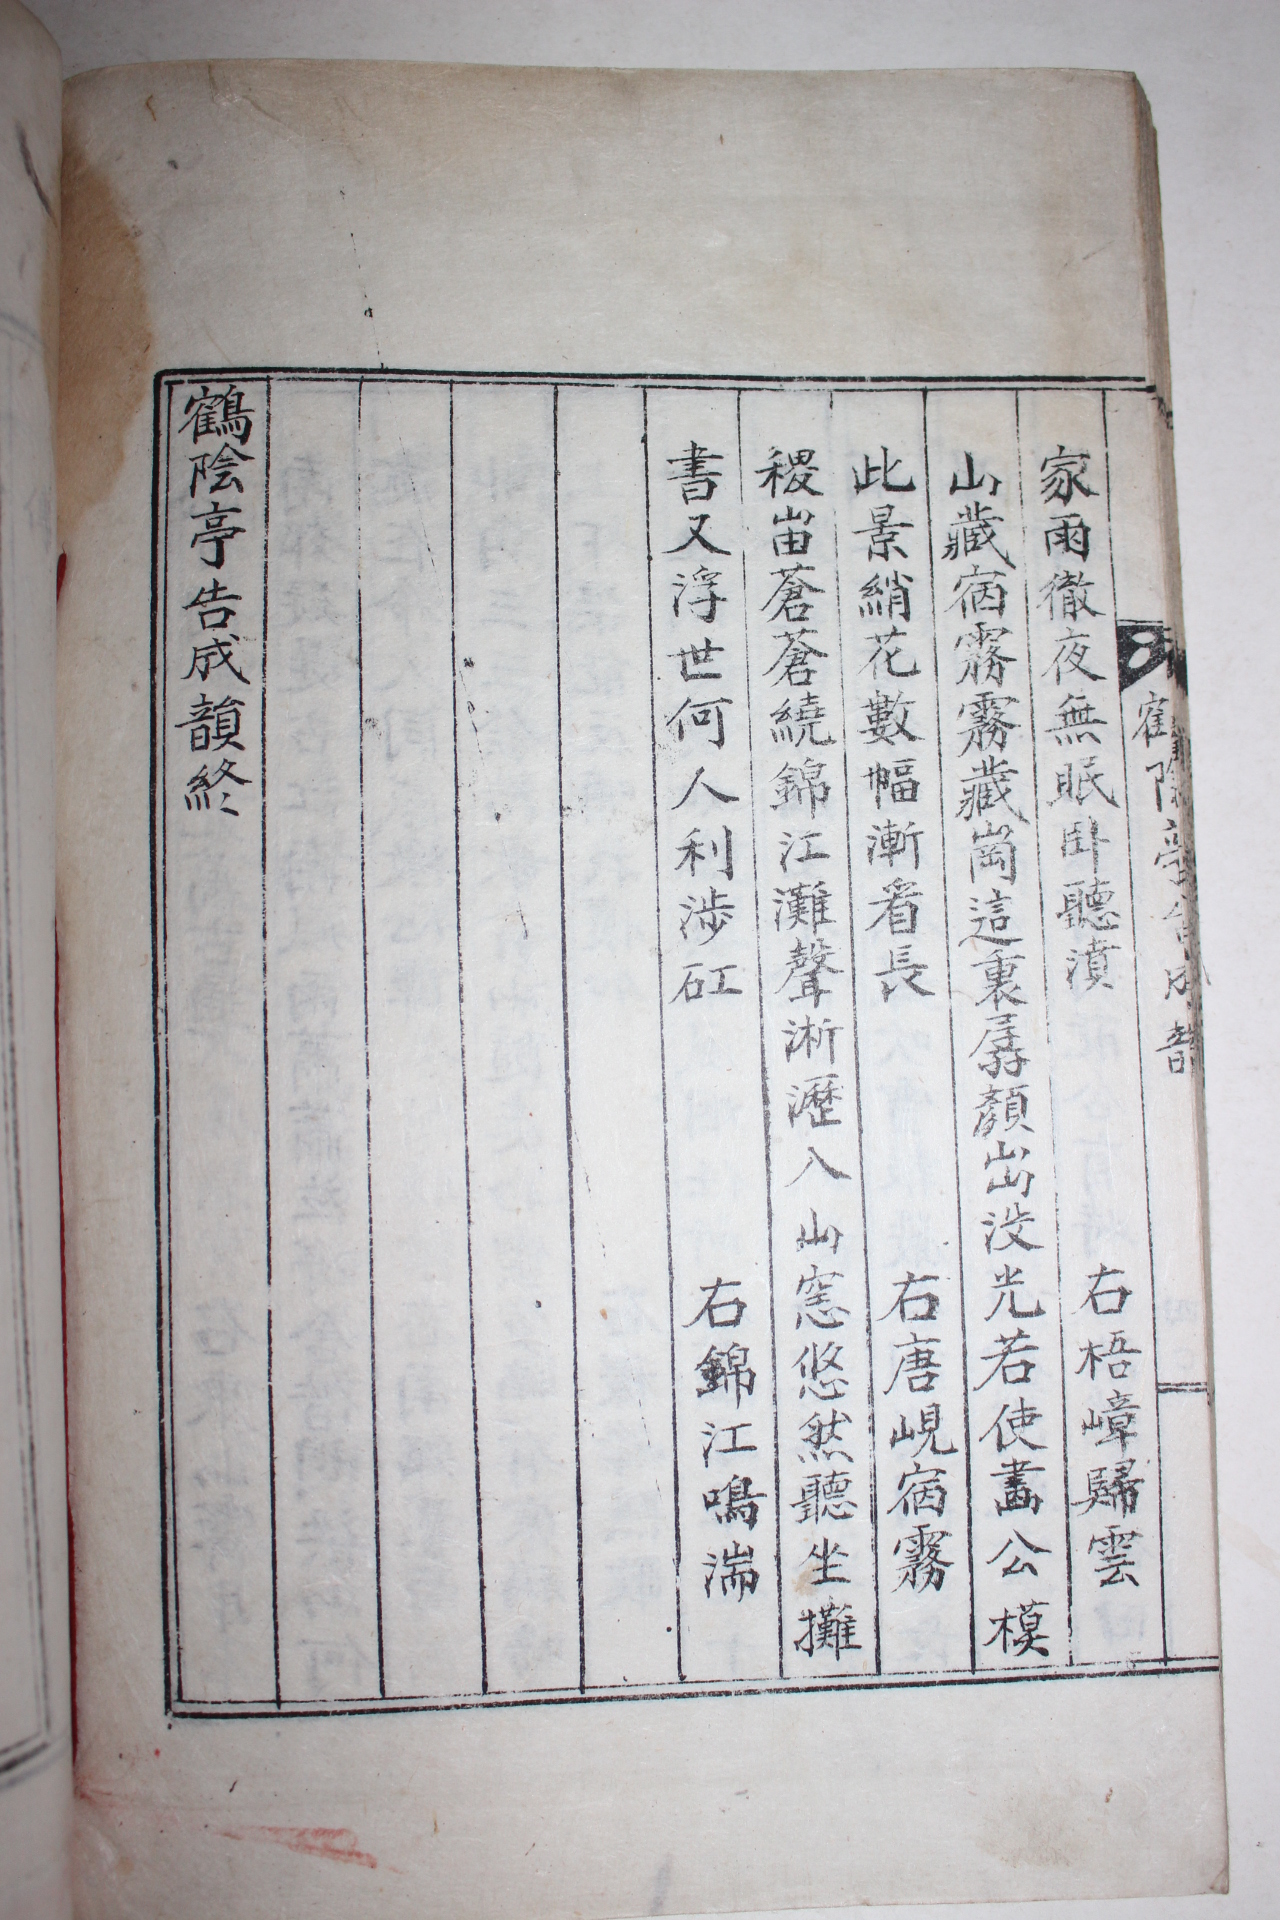 鶴陰亭告成韻
家雨徹夜無眠卧聽濆 右梧嶂歸雲
山藏宿霧霧藏崗這裏孱顏出没光若使畵公模
此景綃花數幅漸看長 右唐峴宿霧
稷峀蒼蒼繞錦江灘聲淅瀝入山窓悠然聽坐攤
書又浮世何人利涉矼 右錦江鳴湍
鶴陰亭告成韻終